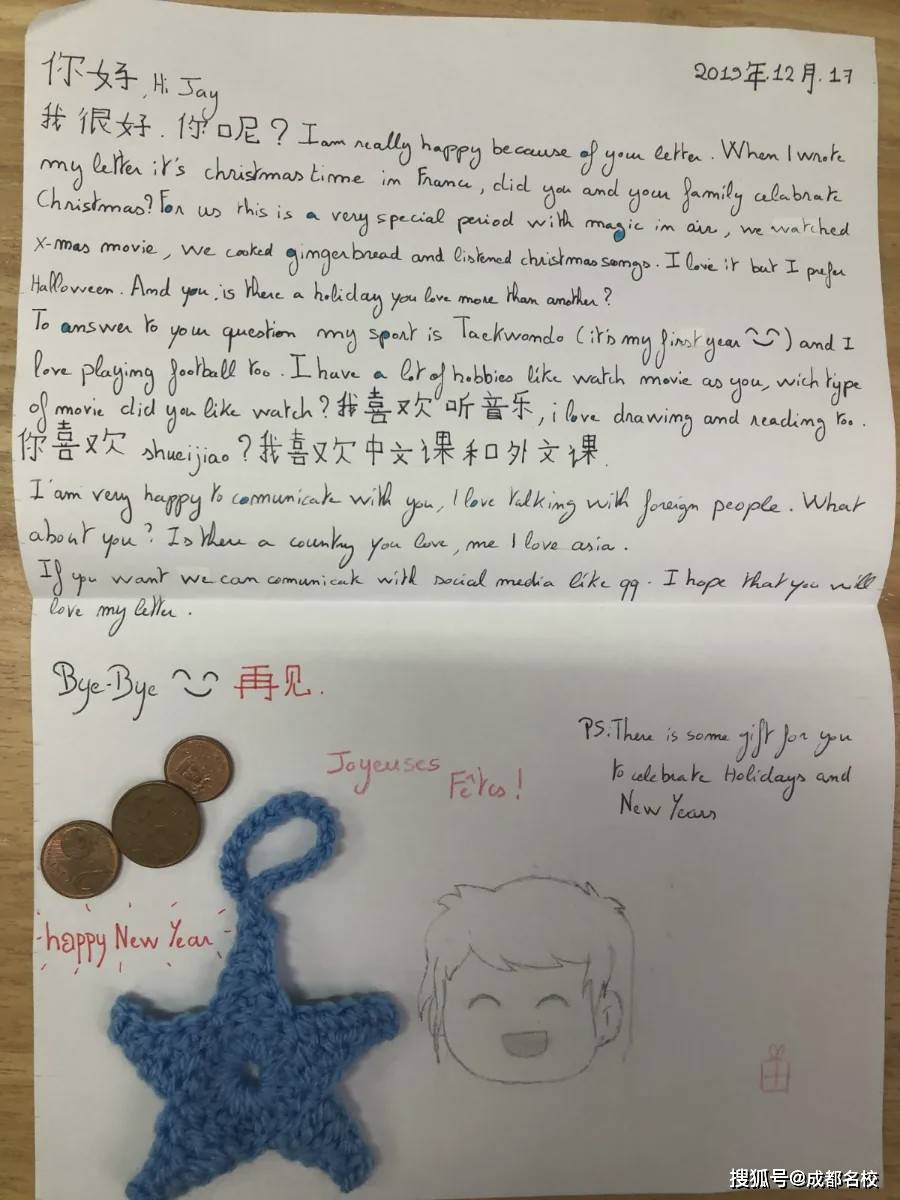 你好, Hi Jay
2019年.12月.17
我很好. 你呢? I am really happy because of your letter. When I wrote
my letter it's christmas time in France, did you and your family celabrate
Christmas? For us this is a very special period with magic in air, we watched
x-mas movie, we cooked gingerbread and listened christmas songs. I love it but I prefer
Halloween. And you, is there a holiday you love more than another?
To answer to your question my sport is Taekwondo (it's my first year) and I
love playing football too. I have a lot of hobbies like watch movie as you, wich type
of movie did you like watch? 我喜欢听音乐, i love drawing and reading too.
你喜欢 shueijiao? 我喜欢中文课和外文课.
I'am very happy to comunicate with you, I love talking with foreign people. What
about you? Is there a country you love, me I love asia.
If you want we can comunicate with social media like qq. I hope that you will
love my letter.
Bye-Bye 再见.
PS: There is some gift for you
to celebrate Holidays and
New Years
Joyeuses
Fêtes!
happy New Year
搜狐号@成都名校